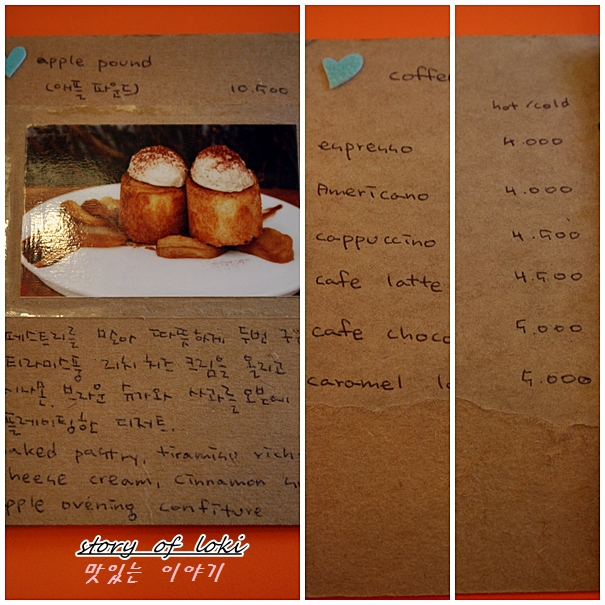 apple pound
(애플 파운드) 10.500
페스트리를 모아 따뜻하게 두번
티라미스풍 리치 치즈 크림을 올리고
시나몬, 브라운 슈가와 사과를 오븐에
플레이팅한 디저트.
aked pastry, tiramisu rich
heese cream, cinnamon
pple ovening confiture
coffe
hot/cold
espresso 4.000
Americano 4.000
cappuccino 4.500
cafe latte 4.500
cafe choco 5.000
caramel la 5.000
story of loki
맛있는 이야기